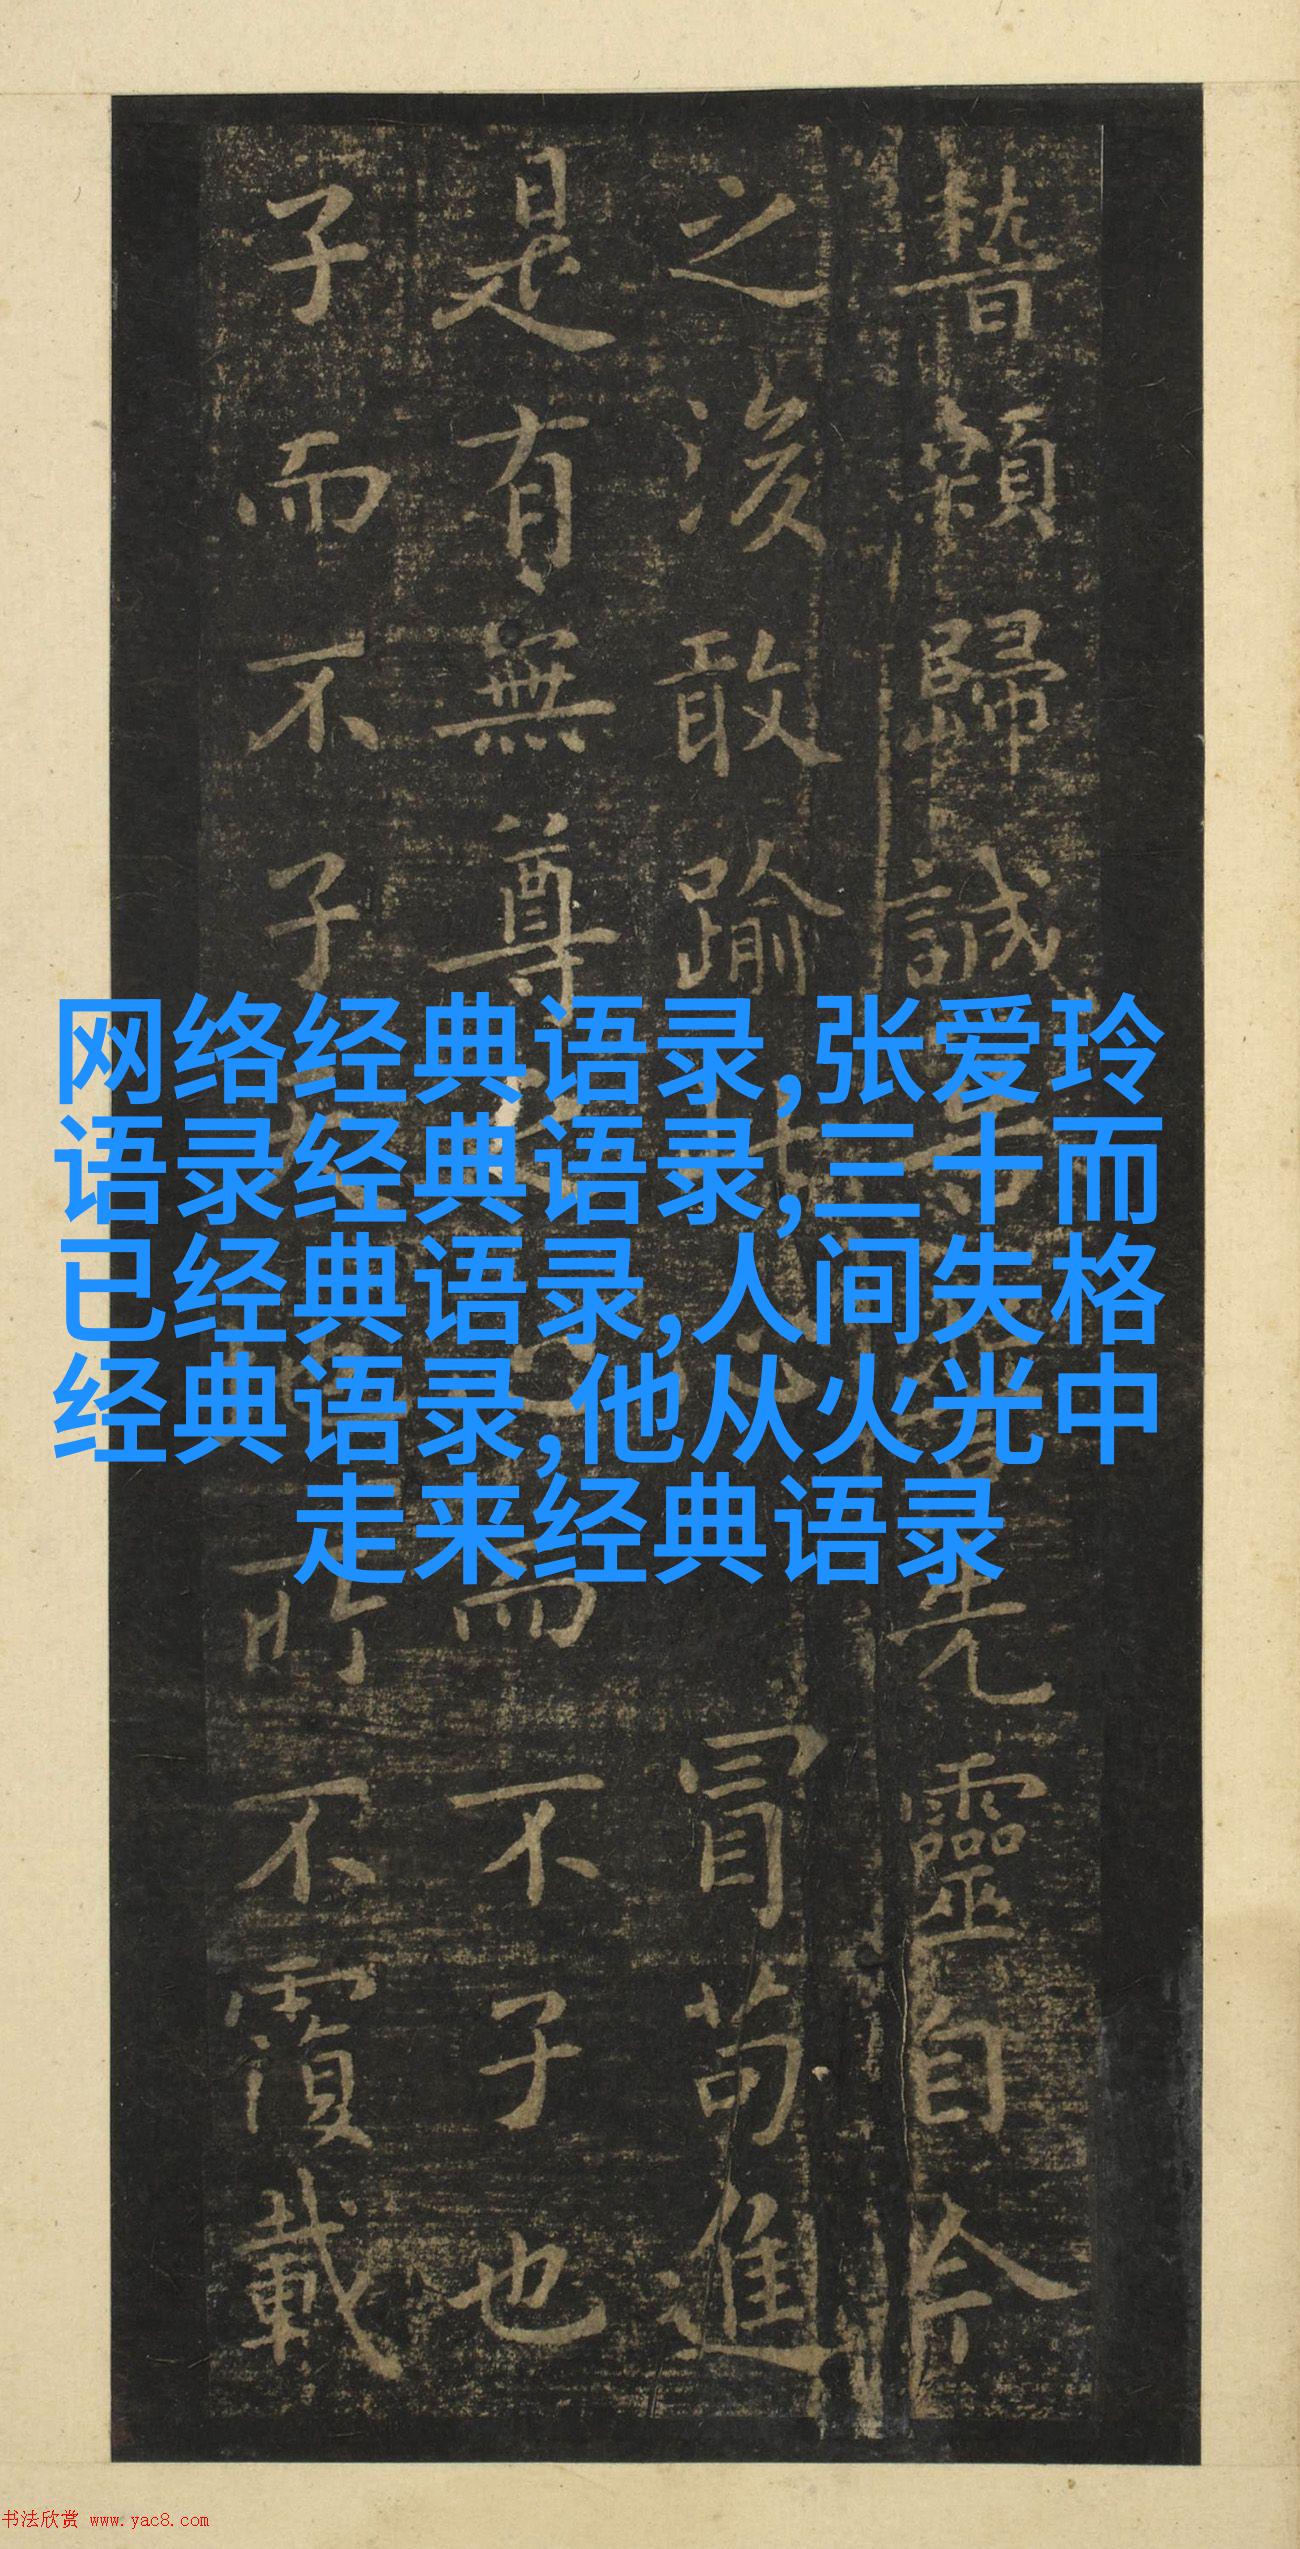 稽顙歸誠先靈自今
之後敢踰冒苟進
是有無尊而不子也
子而不子所不覆載
网络经典语录,张爱玲
语录经典语录,三十而
已经典语录,人间失格
经典语录,他从火光中
走来经典语录
书法欣赏 www.yac8.com